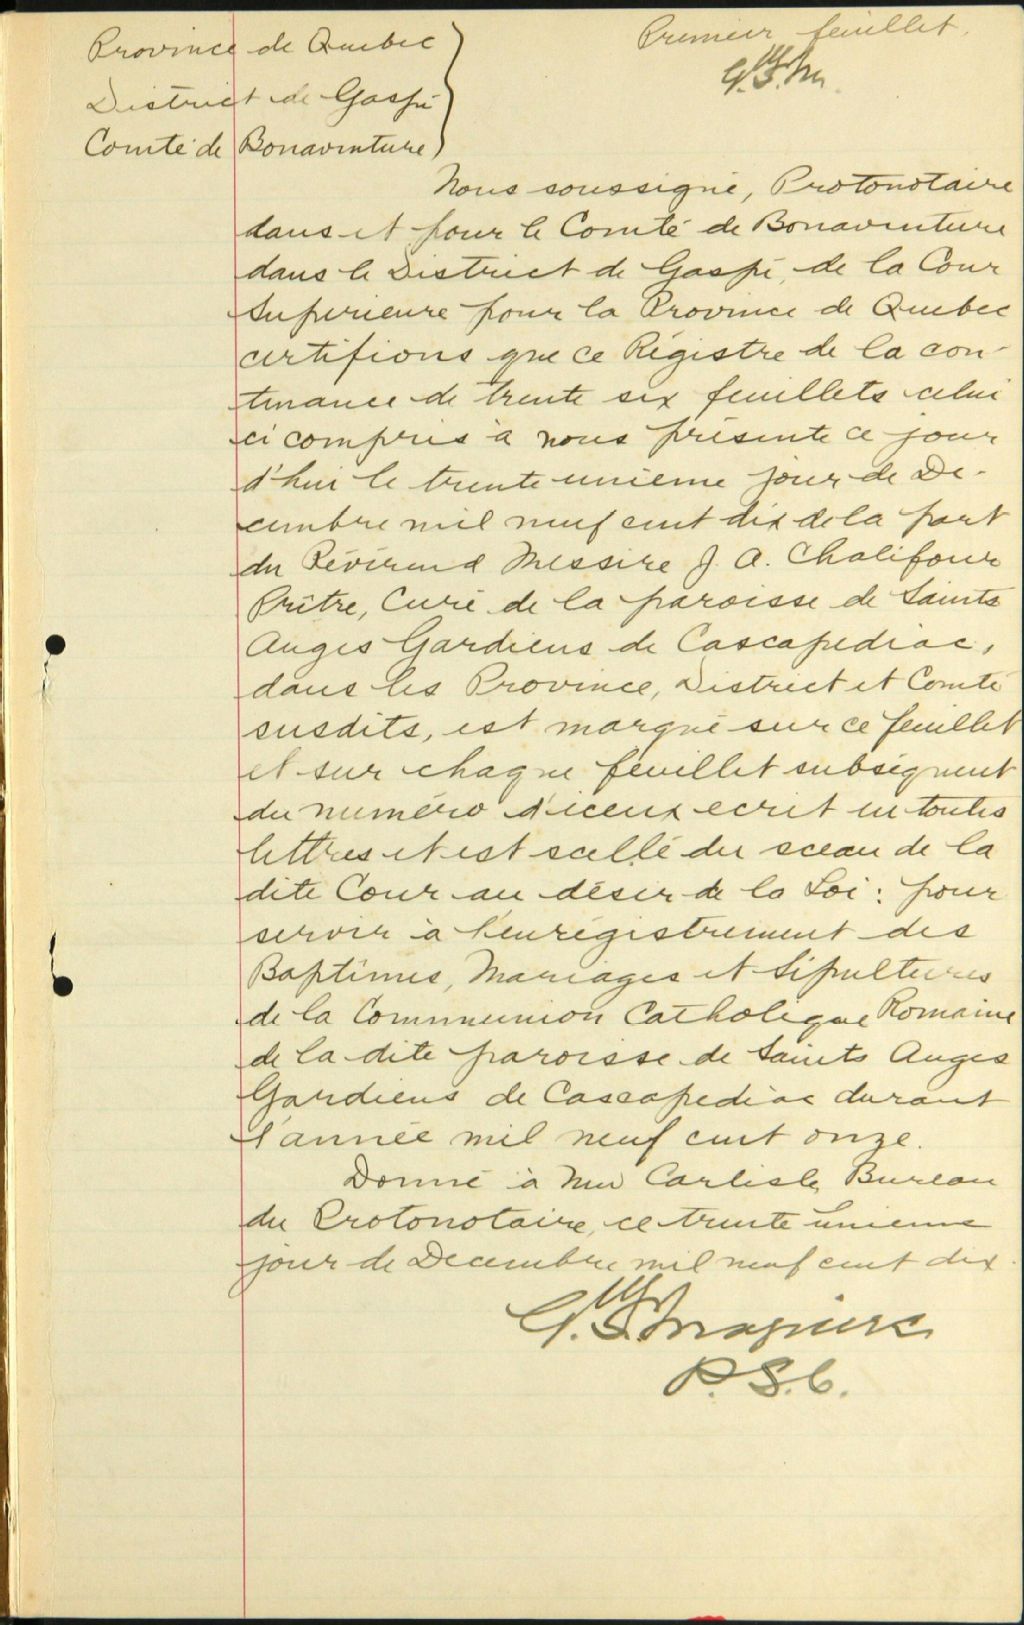 Province de Quebec
District de Gaspé
Comté de Bonaventure
Premier feuillet.
Nous soussigné, Protonotaire
dans et pour le Comté de Bonaventure
dans le District de Gaspé, de la Cour
Superieure pour la Province de Quebec
certifions que ce Régistre de la con-
tenance de trente six feuillets celui
ci compris à nous présenté ce jour
d'hui le trente unième jour de De-
cembre mil neuf cent dix de la part
du Révérend Messire J. A. Chalifour
Prêtre, Curé de la paroisse de Saints
Anges Gardiens de Cascapediac,
dans les Province, District et Comté
susdits, est marqué sur ce feuillet
et sur chaque feuillet subséquent
du numéro d'iceux ecrit en toutes
lettres et est scellé du sceau de la
dite Cour au désir de la Loi: pour
servir à l'enrégistrement des
Baptêmes, Mariages et Sépultures
de la Communion Catholique Romaine
de la dite paroisse de Saints Anges
Gardiens de Cascapediac durant
l'année mil neuf cent onze.
Donné à New Carlisle, Bureau
du Protonotaire, ce trente unieme
jour de Decembre mil neuf cent dix.
P.S.C.